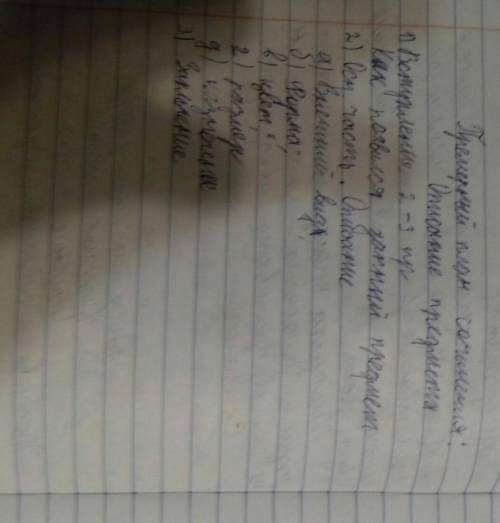 Примерный план сочинения:
Описание предмета
1) Вступление 2-3 пр.
Как появился данный предмет
2) Осн часть. Описание
а) Внешний вид;
б) Форма;
в) цвет;
г) размер
д)
3) Заключение